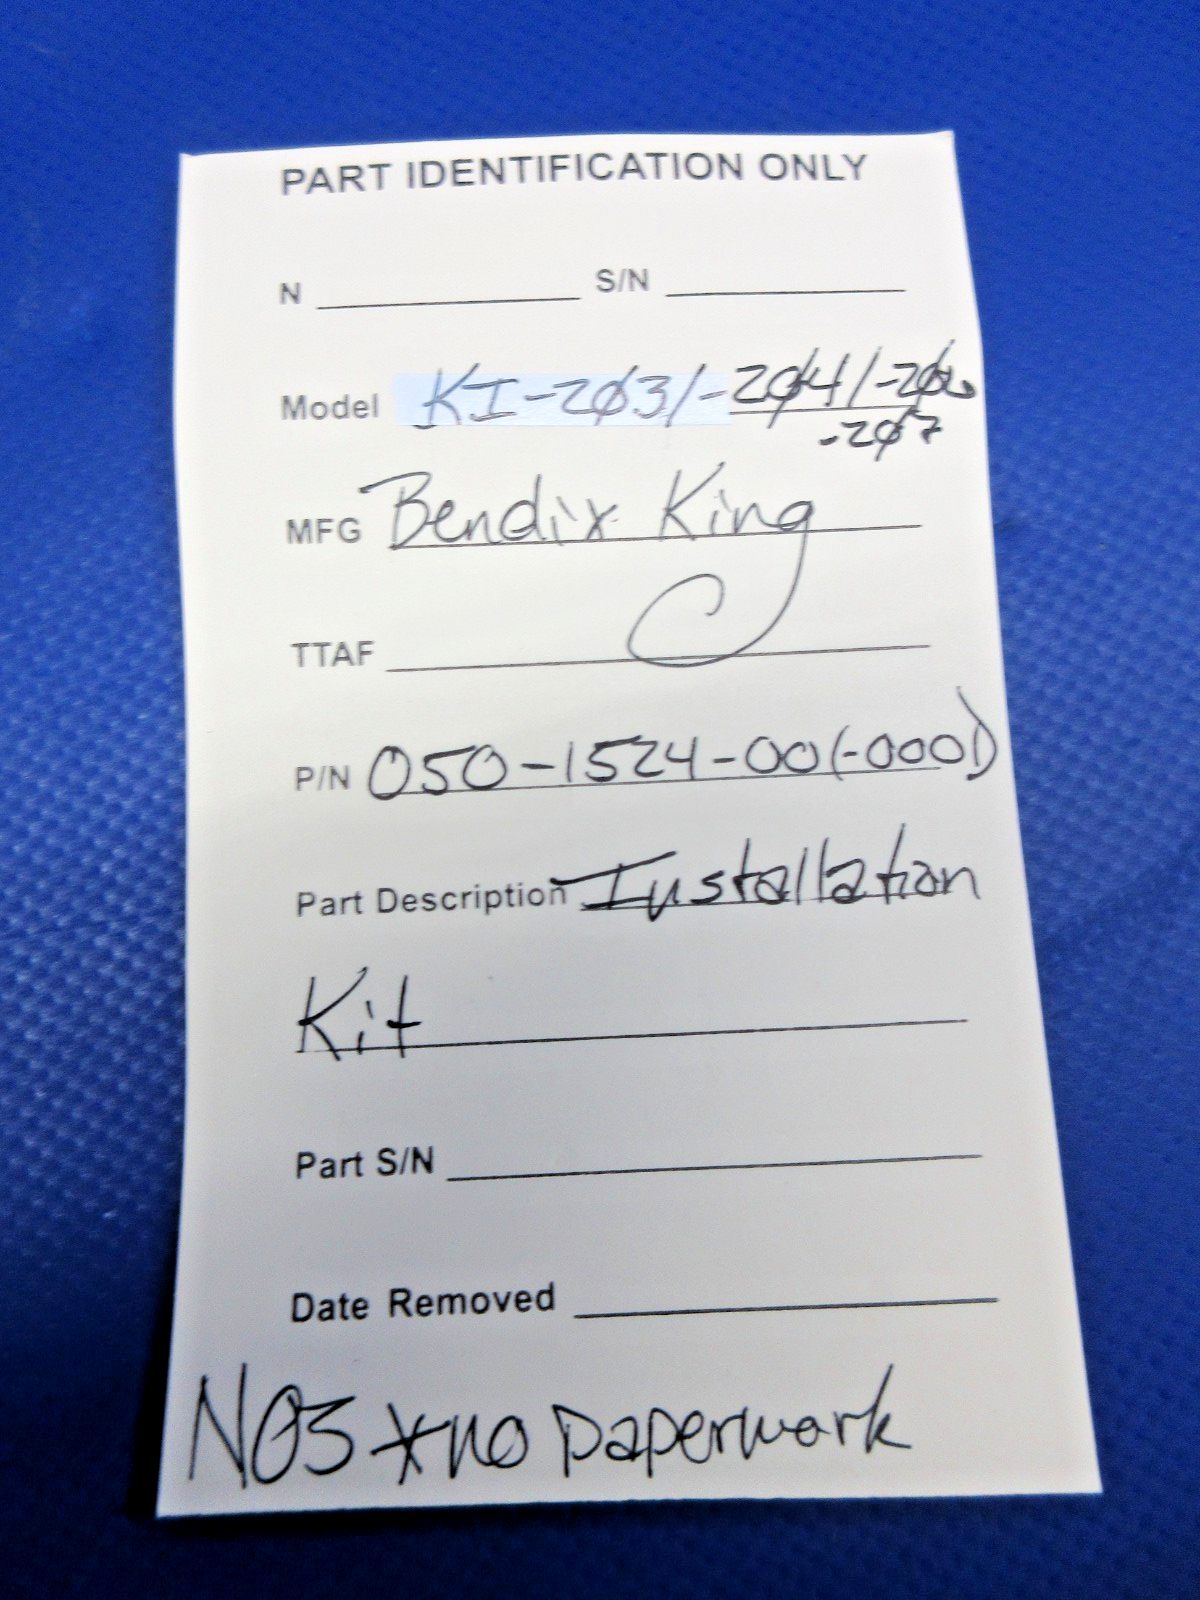 PART IDENTIFICATION ONLY
N S/N
Model KI-203/-204/-206
-207
MFG Bendix King
TTAF
P/N 050-1524-00(-0001)
Part Description Installation
Kit
Part S/N
Date Removed
NOS *no paperwork